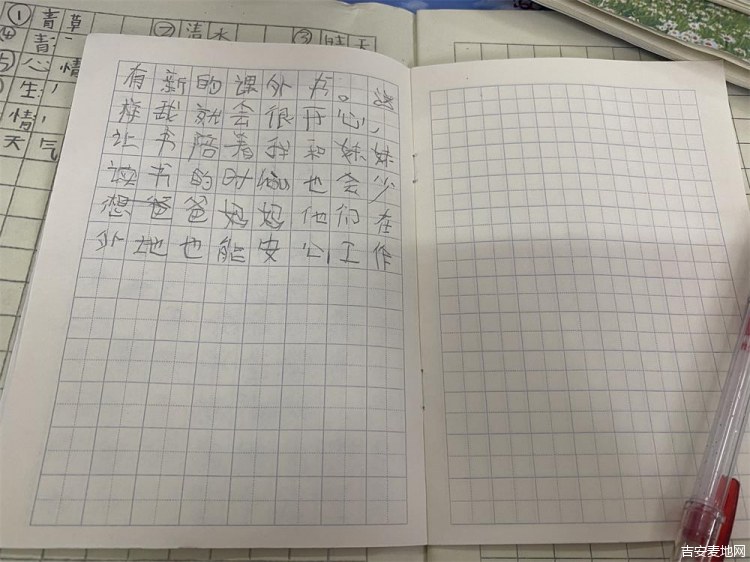 ①青草
②清水
③晴天
有新的课外书。这
样我就会很开心,
让书陪着我和妹妹
读书的时候也会少
想爸爸妈妈他们在
外地也能安心工作
心情
天气
吉安麦地网